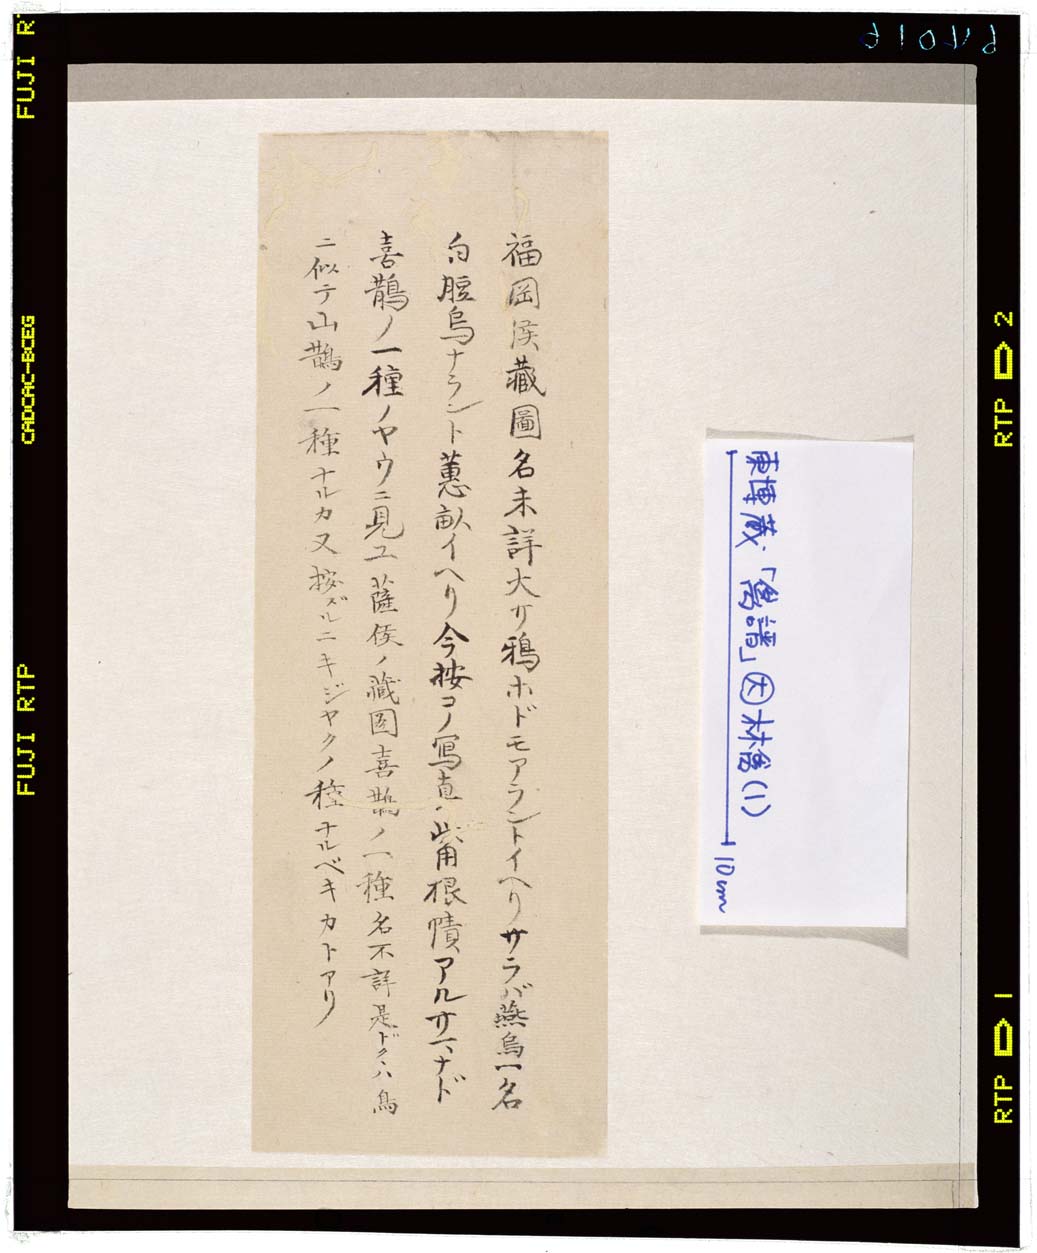 福岡侯藏圖名未詳大サ鴉ホドモアラントイヘリサラバ燕烏一名
白脰烏ナラント蕙畝イヘリ今按コノ写真嘴角根幘アルサマナド
喜鵲ノ一種ノヤウニ見ユ薩侯ノ藏図喜鵲ノ一種名不詳是ドクハ烏
ニ似テ山鵲ノ一種ナルカ又按ズルニキジヤクノ種ナルベキカトアリ
東博蔵「鳥譜」林禽(1)
10cm
FUJI RTP
CADCAC-BCEG
RTP 2
RTP 1